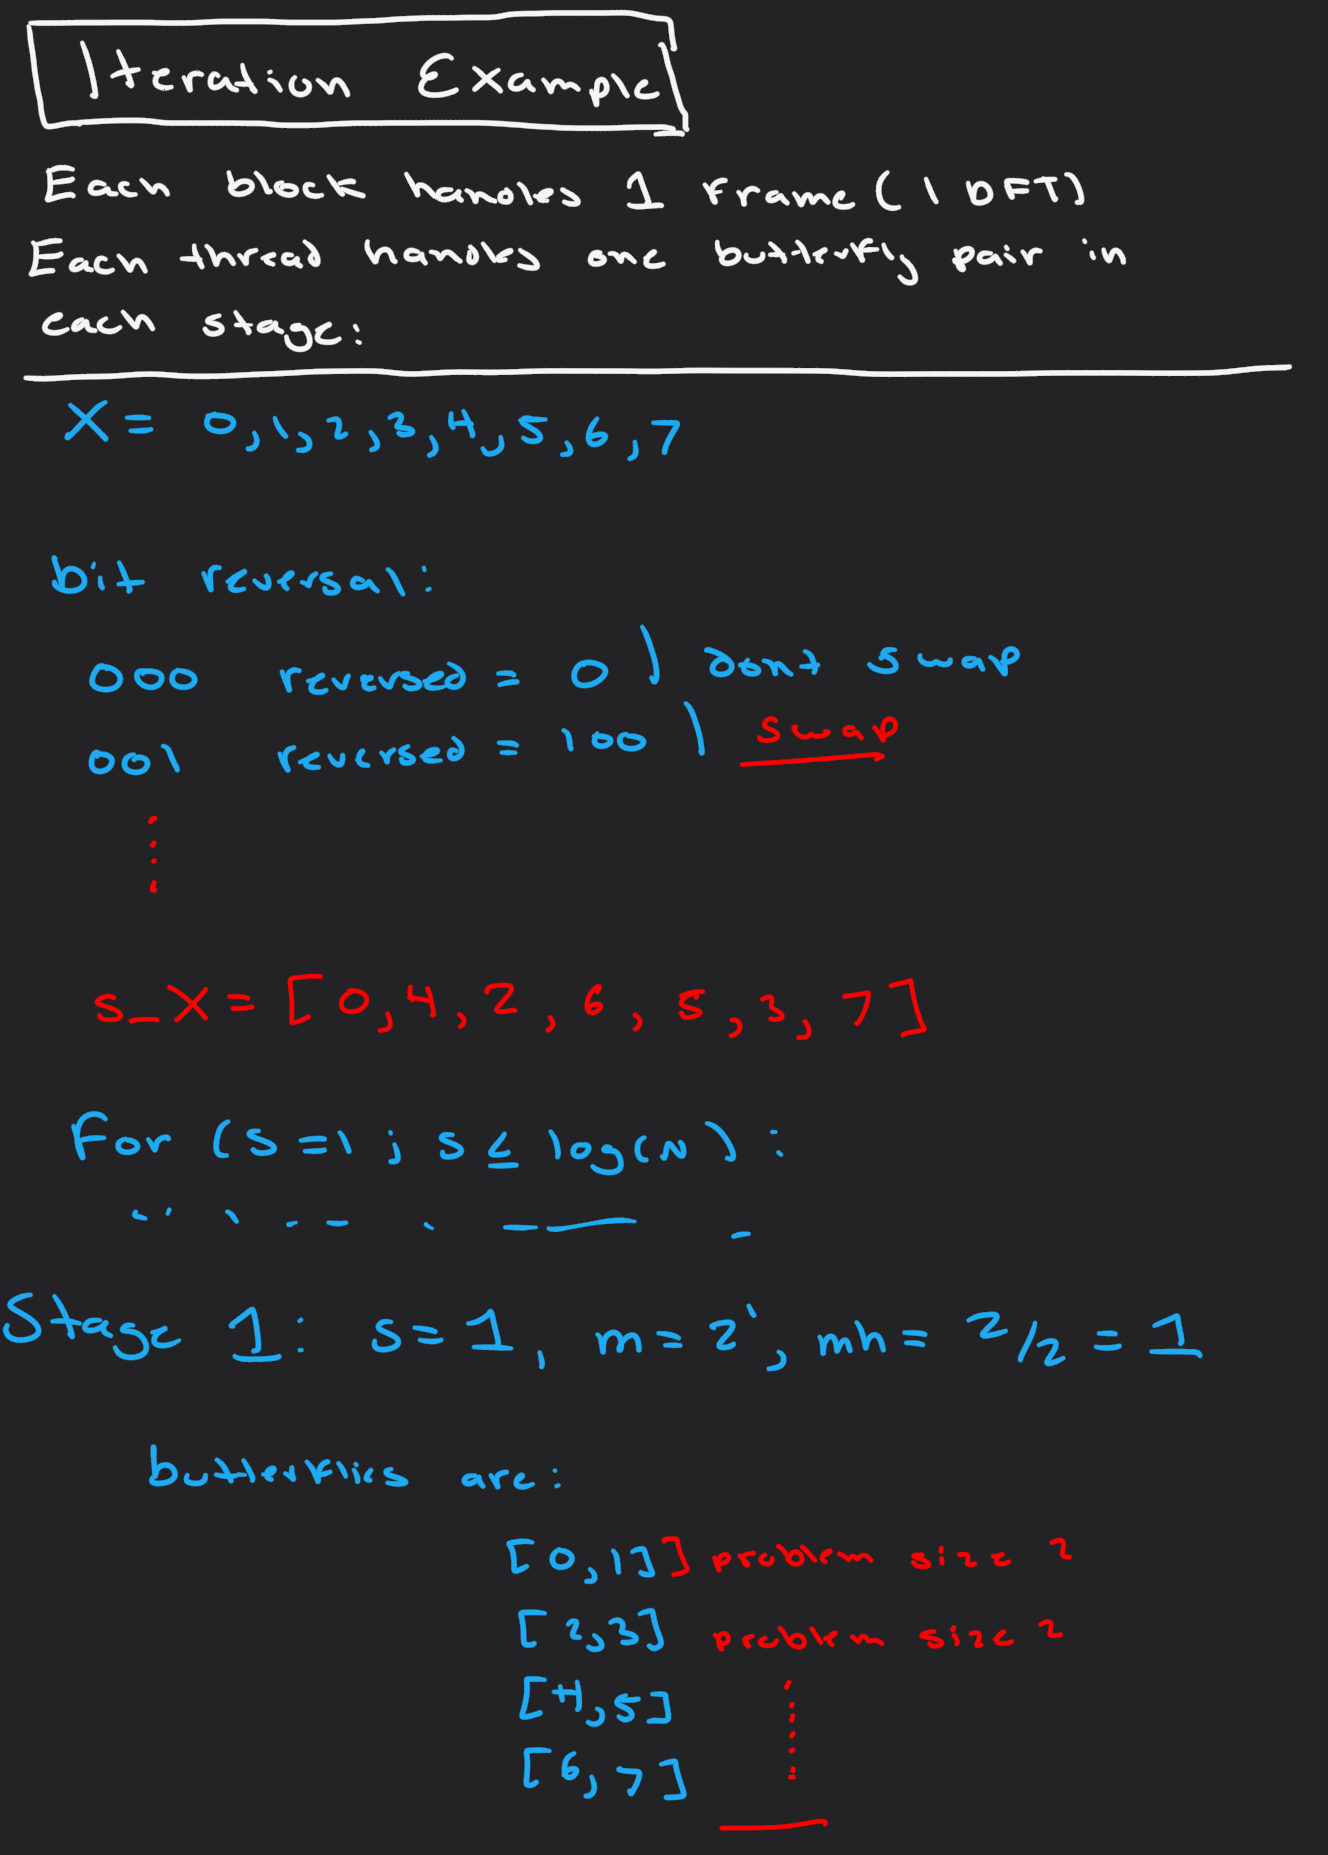 Iteration Example
Each block handles 1 frame (1 DFT)
Each thread handles one butterfly pair in
each stage:
X = 0,1,2,3,4,5,6,7
bit reversal:
000 reversed = 0 ) dont swap
001 reversed = 100 ) swap
s_X = [0,4,2,6,5,3,7]
For (s=1; s≤log(N):
Stage 1: s=1, m=2¹, mh = 2/2 = 1
butterflies are:
[0,1]] problem size 2
[2,3] problem size 2
[4,5]
[6,7]